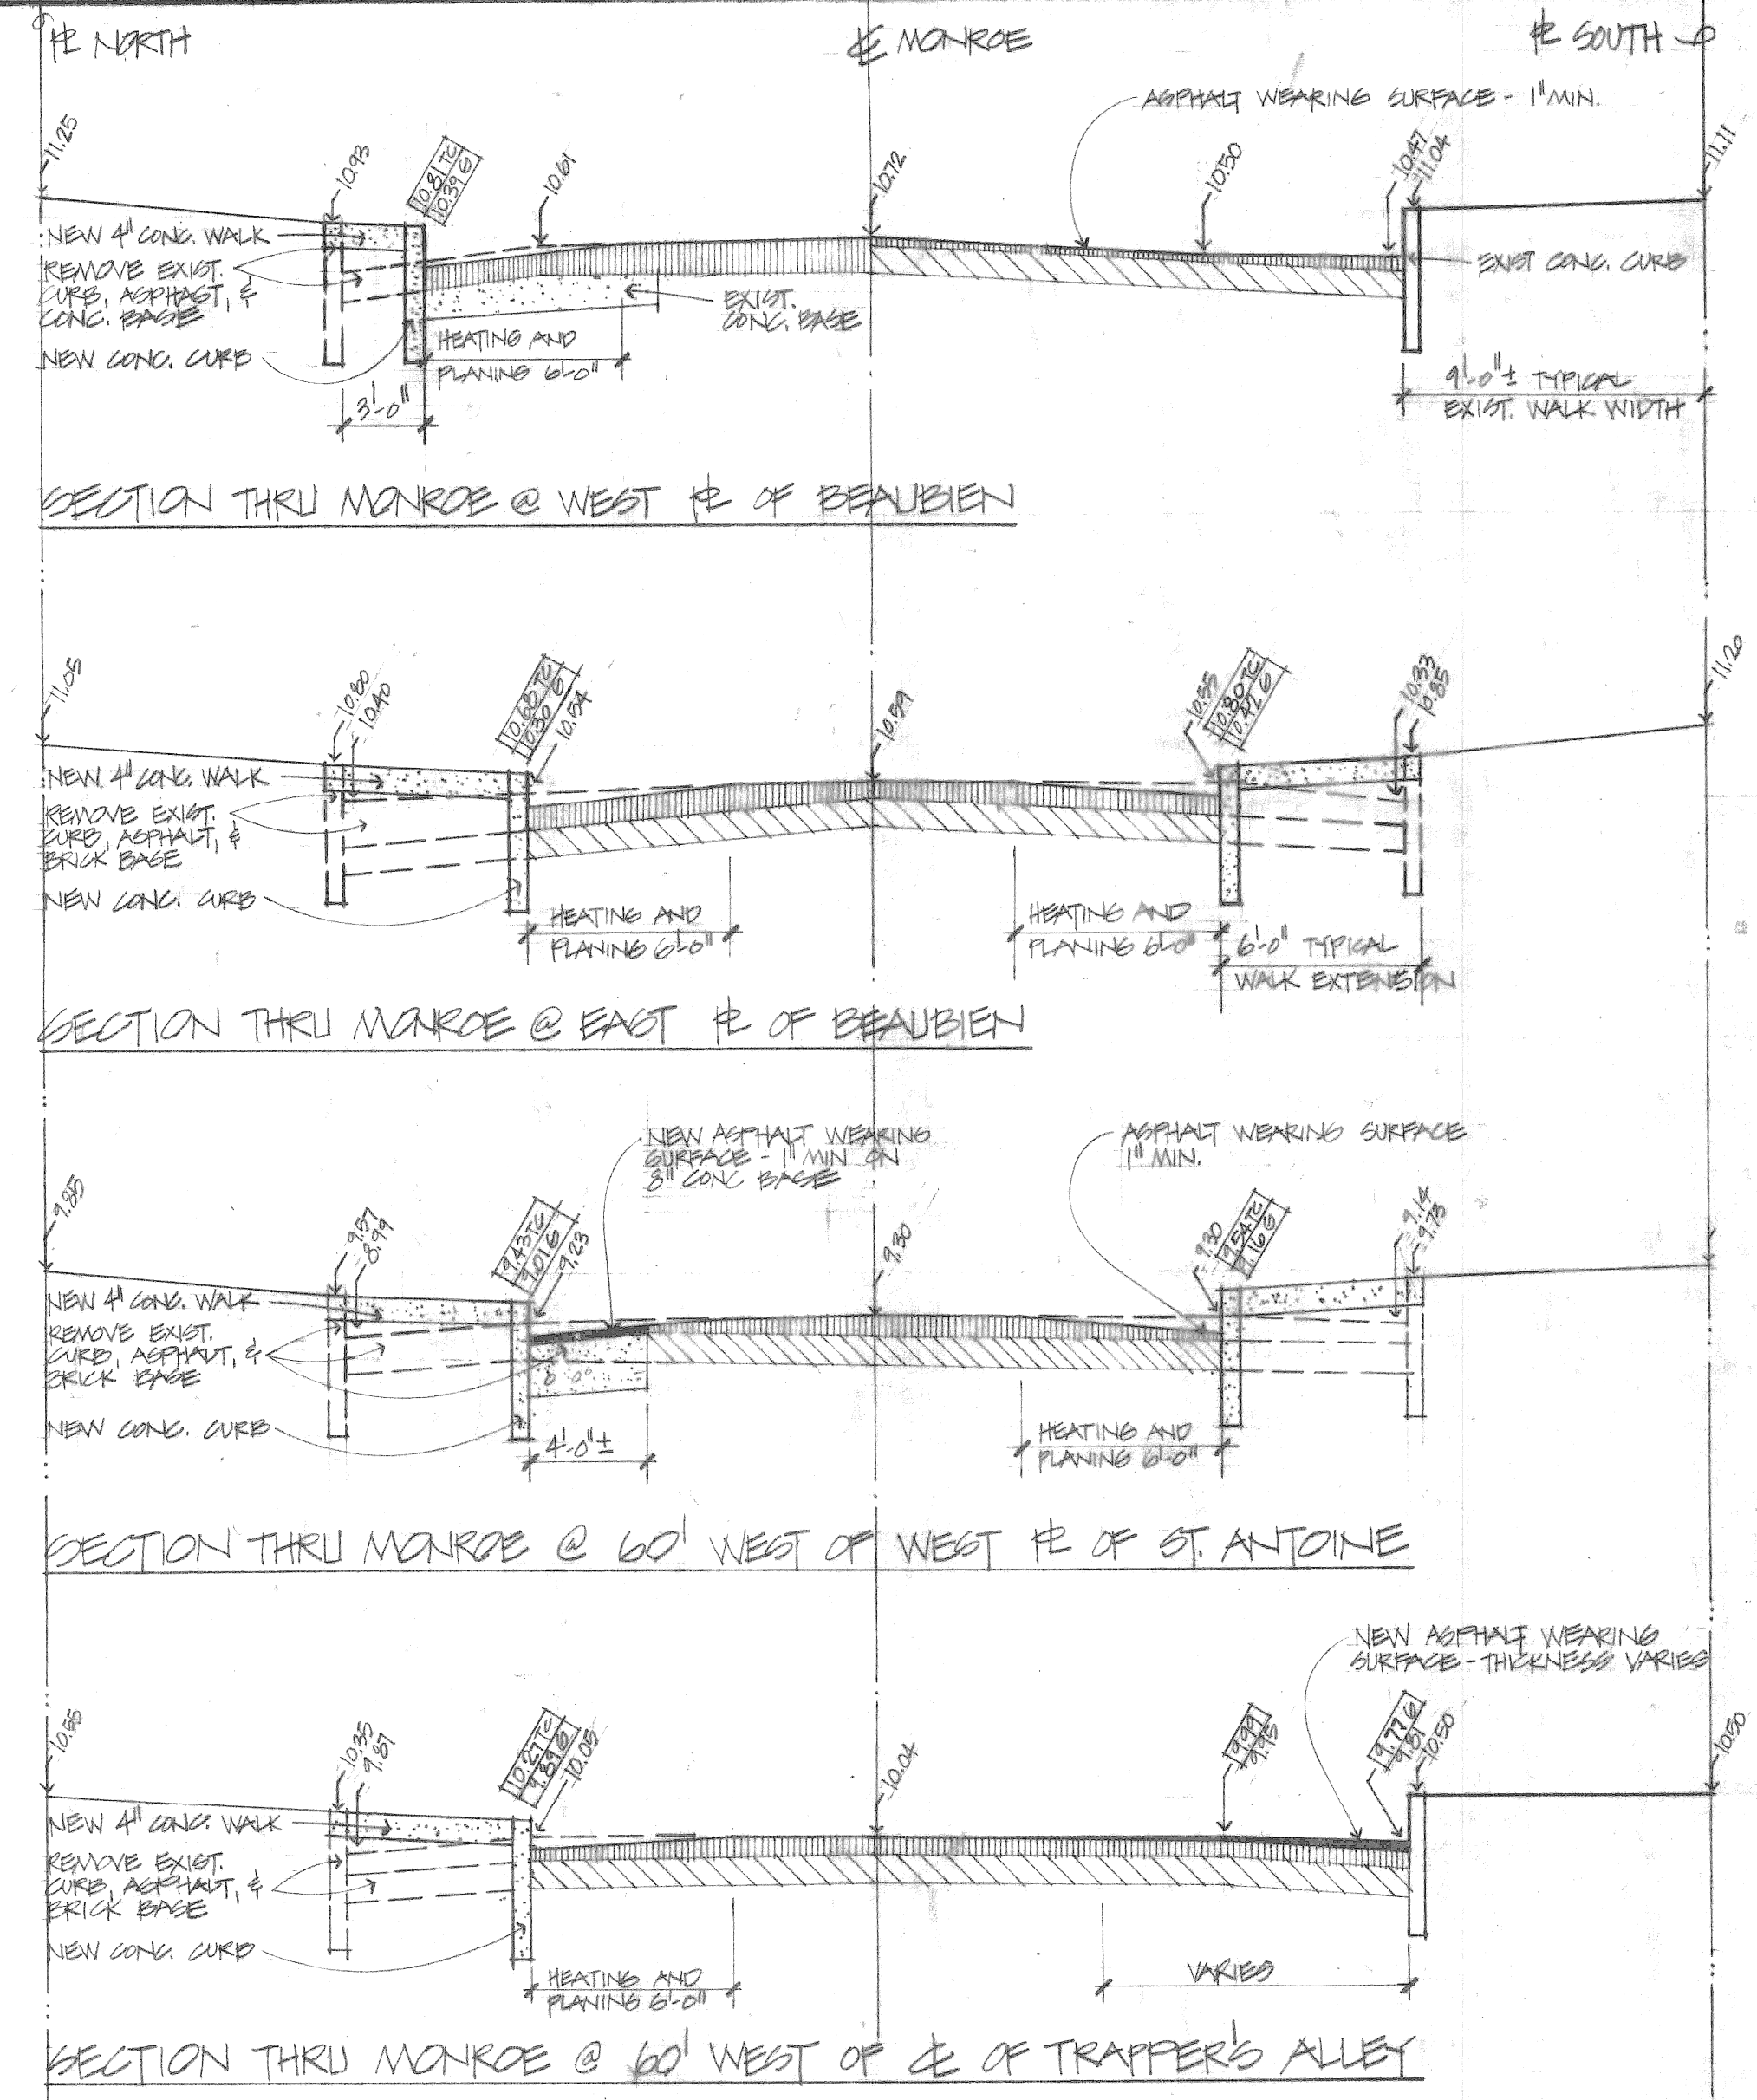 ℄ NORTH
℄ MONROE
℄ SOUTH
ASPHALT WEARING SURFACE - 1" MIN.
11.25
10.93
10.81 TC
10.39 G
10.61
10.72
10.50
10.47
11.04
11.11
NEW 4" CONC. WALK
REMOVE EXIST.
CURB, ASPHALT, &
CONC. BASE
NEW CONC. CURB
EXIST.
CONC. BASE
EXIST CONC. CURB
HEATING AND
PLANING 6'-0"
3'-0"
9'-0"± TYPICAL
EXIST. WALK WIDTH
SECTION THRU MONROE @ WEST ℄ OF BEAUBIEN
11.05
10.80
10.40
10.68 TC
10.30 G
10.54
10.59
10.55
10.80 TC
10.42 G
10.33
10.85
11.20
NEW 4" CONC. WALK
REMOVE EXIST.
CURB, ASPHALT, &
BRICK BASE
NEW CONC. CURB
HEATING AND
PLANING 6'-0"
HEATING AND
PLANING 6'-0"
6'-0" TYPICAL
WALK EXTENSION
SECTION THRU MONROE @ EAST ℄ OF BEAUBIEN
NEW ASPHALT WEARING
SURFACE - 1" MIN ON
8" CONC BASE
ASPHALT WEARING SURFACE
1" MIN.
9.85
9.57
8.99
9.43 TC
9.01 G
9.23
9.30
9.30
9.54 TC
9.16 G
9.14
9.73
NEW 4" CONC. WALK
REMOVE EXIST.
CURB, ASPHALT, &
BRICK BASE
NEW CONC. CURB
4'-0"±
HEATING AND
PLANING 6'-0"
SECTION THRU MONROE @ 60' WEST OF WEST ℄ OF ST. ANTOINE
NEW ASPHALT WEARING
SURFACE - THICKNESS VARIES
10.55
10.35
9.87
10.27 TC
9.89 G
10.05
10.04
9.99
9.95
9.77 G
9.81
10.50
10.50
NEW 4" CONC. WALK
REMOVE EXIST.
CURB, ASPHALT, &
BRICK BASE
NEW CONC. CURB
HEATING AND
PLANING 6'-0"
VARIES
SECTION THRU MONROE @ 60' WEST OF ℄ OF TRAPPER'S ALLEY